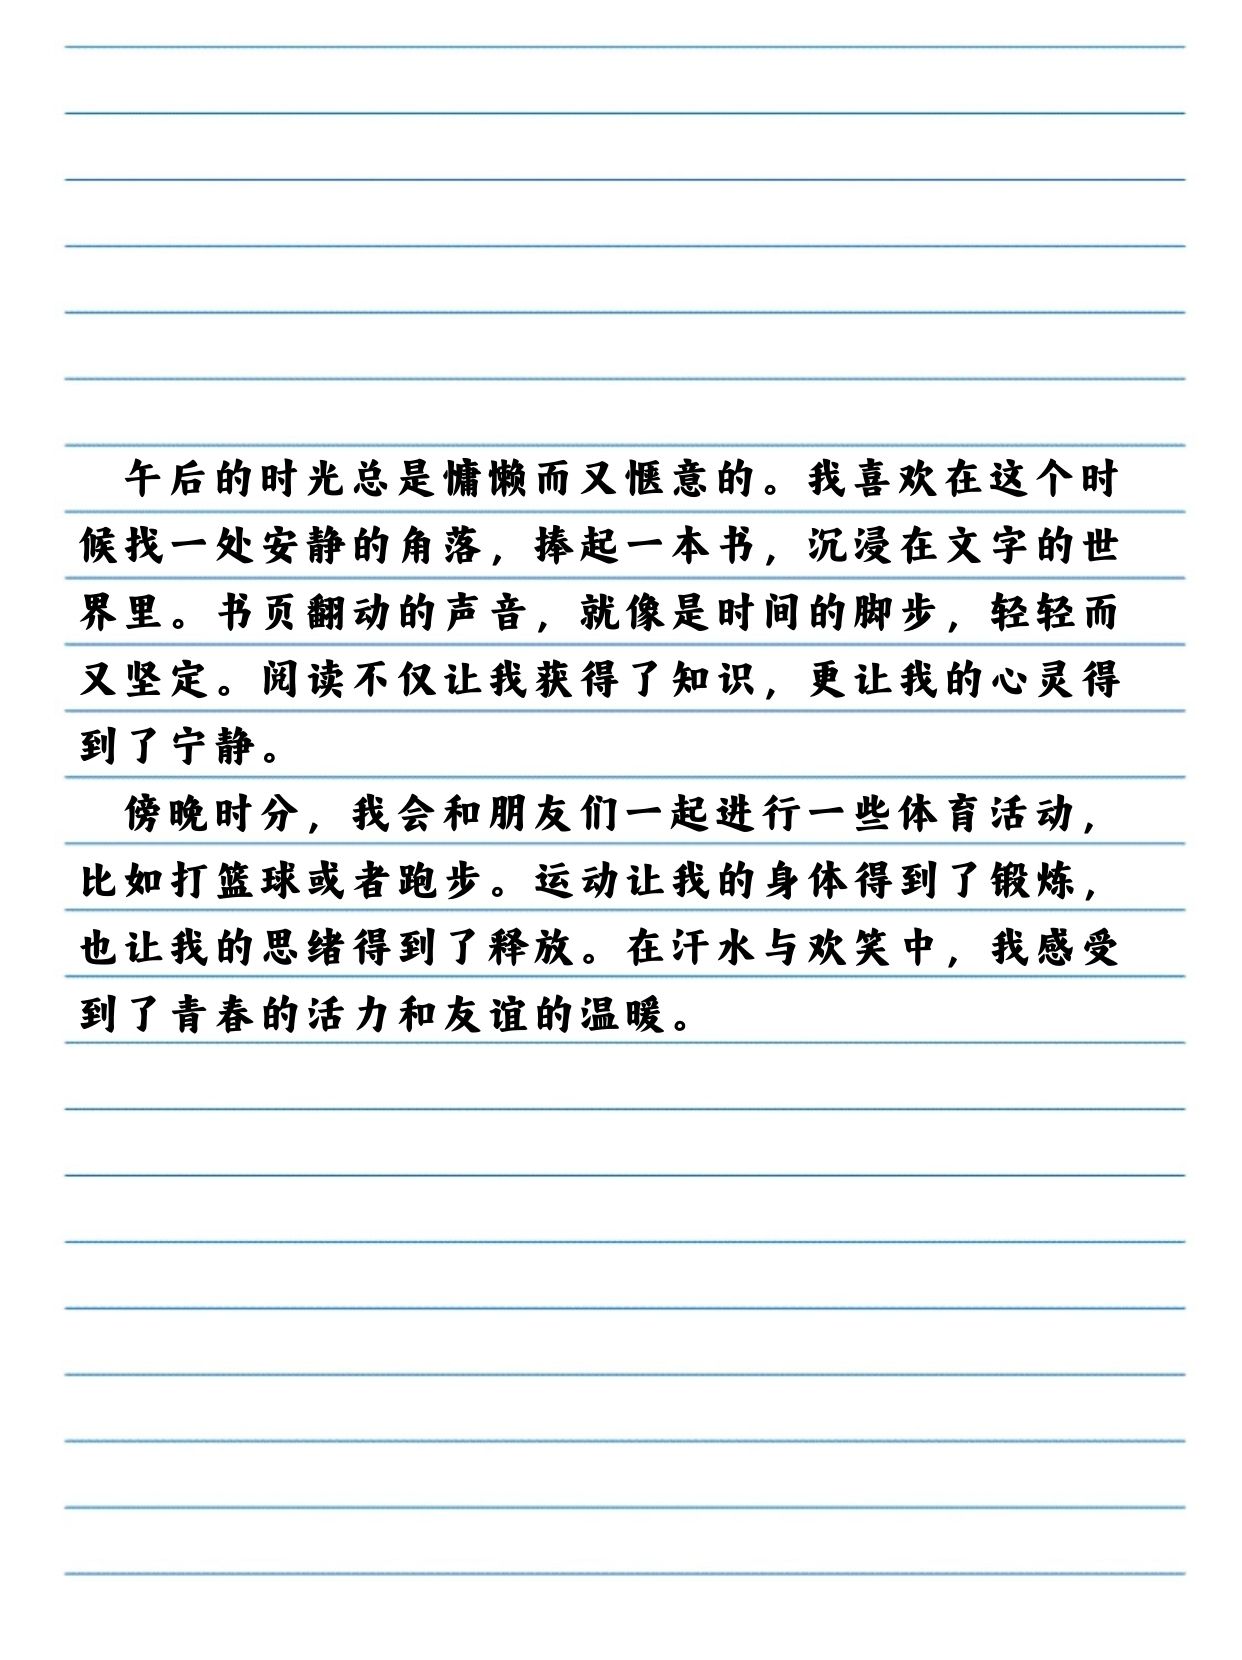 午后的时光总是慵懒而又惬意的。我喜欢在这个时
候找一处安静的角落，捧起一本书，沉浸在文字的世
界里。书页翻动的声音，就像是时间的脚步，轻轻而
又坚定。阅读不仅让我获得了知识，更让我的心灵得
到了宁静。
傍晚时分，我会和朋友们一起进行一些体育活动，
比如打篮球或者跑步。运动让我的身体得到了锻炼，
也让我的思绪得到了释放。在汗水与欢笑中，我感受
到了青春的活力和友谊的温暖。